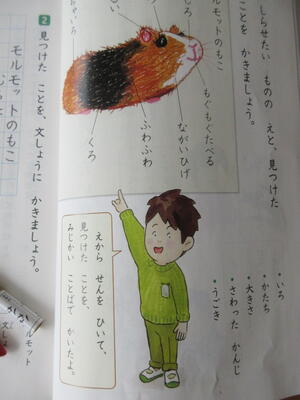 しらせたい ものの えと、見つけた
ことを かきましょう。
モルモットのもこ
もぐもぐたべる
ながいひげ
ふわふわ
くろ
しろ
ちゃいろ
・いろ
・かたち
・大きさ
・さわった かんじ
・うごき
えから せんを ひいて、
見つけた ことを、
みじかい ことばで かいたよ。
2 見つけた ことを、文しょうに かきましょう。
モルモットのもこ
モルモット